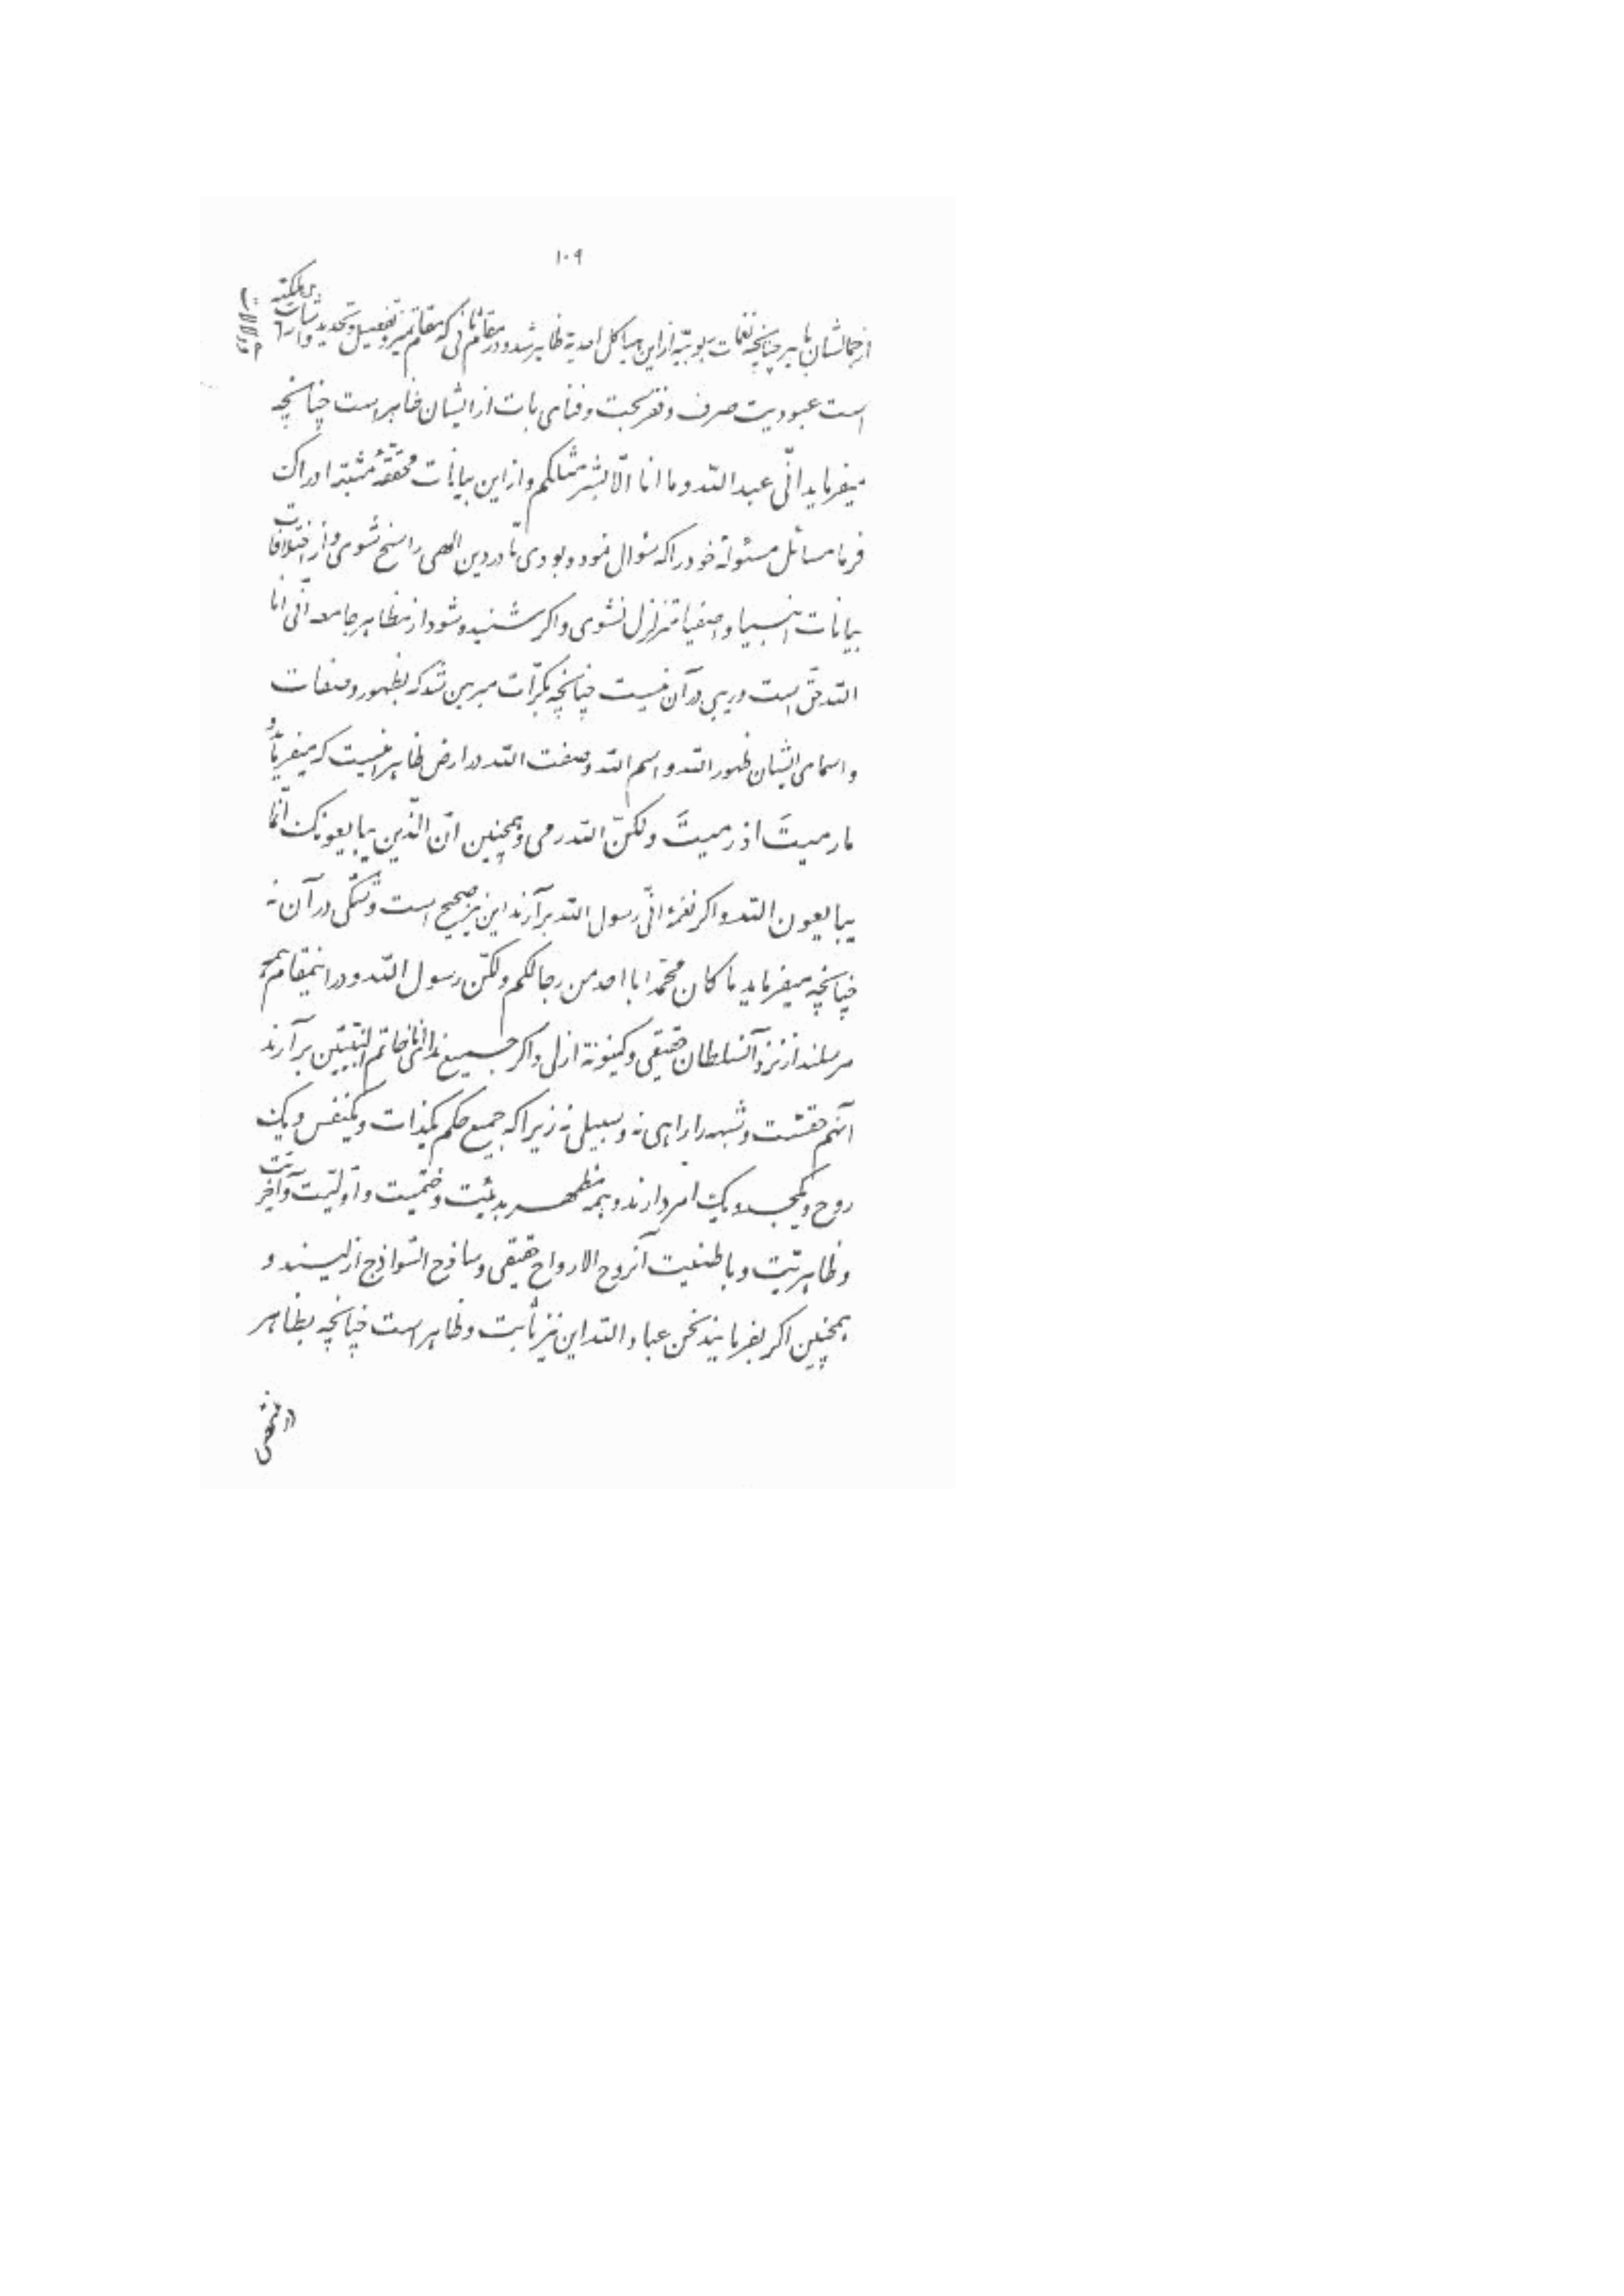 ١٠٩
از جمالشان باهر چنانچه نغمات ربوبیّه از این هیاکل احدیّه ظاهر شد و در مقام ثانی که مقام تمیز و تفصیل و تحدید و اشارات و دلالات ملکیّه
است عبودیت صرف و فقر بحت و فنای بات از ایشان ظاهر است چنانچه
میفرماید انّی عبد اللّه و ما انا الّا بشر مثلکم و از این بیانات محقّقهٔ مثبته ادراک
فرما مسائل مسئولهٔ خود را که سؤال نموده بودی تا در دین الهی راسخ شوی و از اختلافات
بیانات انبیا و اصفیا متزلزل نشوی و اکر شنیده شود از مظاهر جامعه انّی انا
اللّه حقّ است و ریبی در آن نیست چنانچه بکرّات مبرهن شد که بظهور و صفات
و اسمای ایشان ظهور اللّه و اسم اللّه و صفت اللّه در ارض ظاهر اینست که میفرماید و
ما رمیتَ اذ رمیتَ ولکنّ اللّه رمی و همچنین انّ الّذین یبایعونک انّما
یبایعون اللّه و اکر نغمهٔ انّی رسول اللّه برآرند این نیز صحیح است و شکّی در آن نه
چنانچه میفرماید ما کان محمّد ابا احد من رجالکم ولکنّ رسول اللّه و در اینمقام همه
مرسلند از نزد آنسلطان حقیقی و کینونهٔ ازلی و اکر جمیع ندای انا خاتم النّبیّین برآرند
آنهم حقّست و شبهه را راهی نه و سبیلی نه زیرا که جمیع حکم یکذات و یکنفس و یک
روح و یکجسد و یک امر دارند و همه مظهر بدئیّت و ختمیت و اوّلیّت و آخریّت
و ظاهریّت و باطنیت آنروح الارواح حقیقی و ساذج السّواذج ازلیند و
همچنین اکر بفرمایند نحن عباد اللّه این نیز ثابت و ظاهر است چنانچه بظاهر